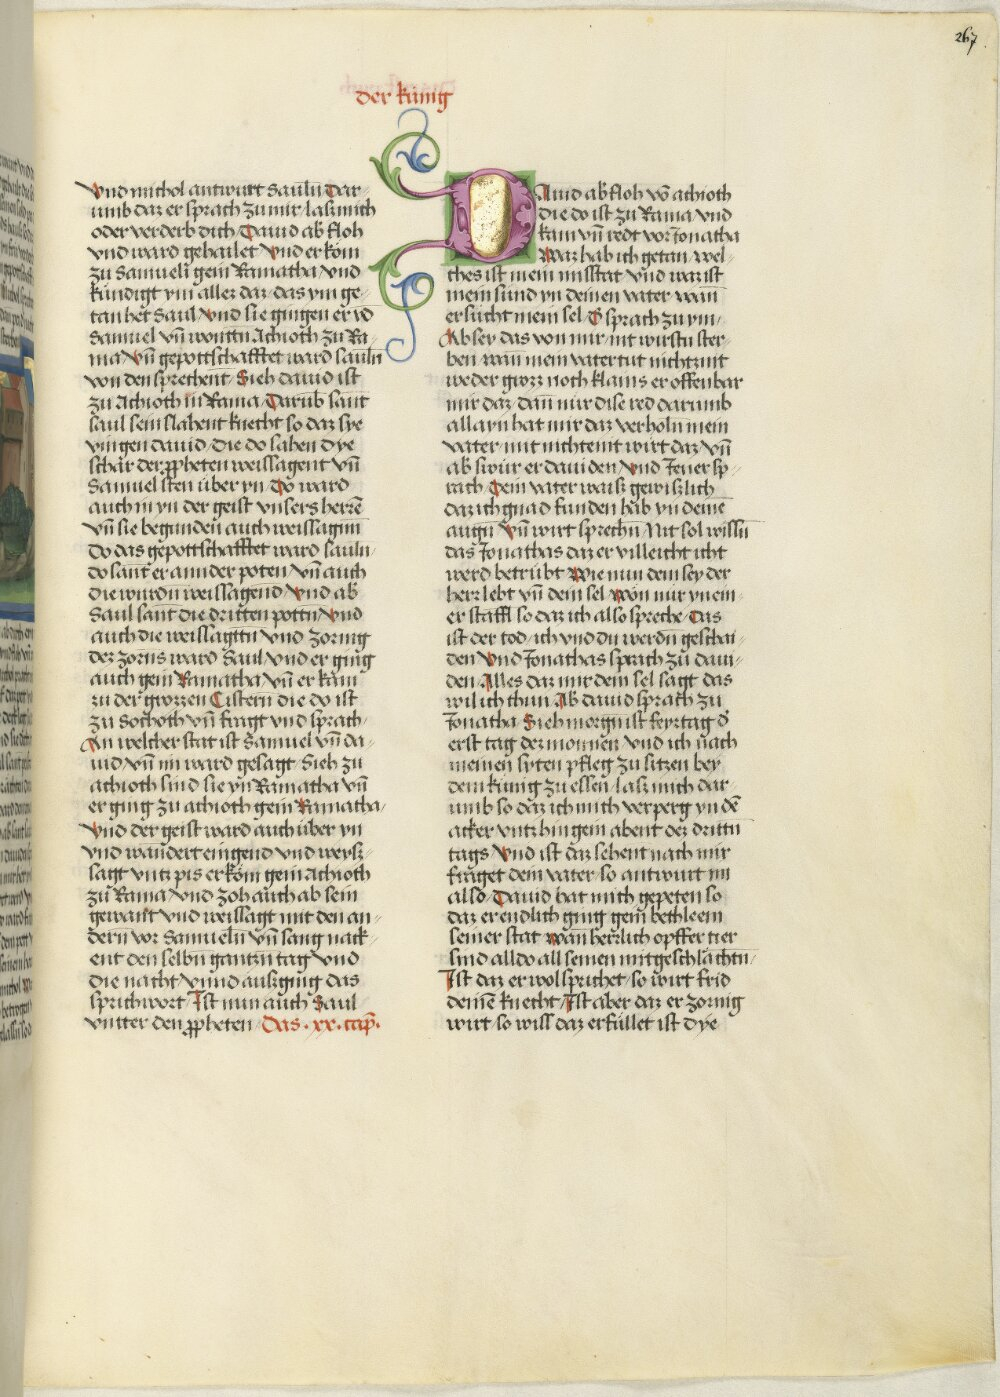 267
der kunig
Vnd michol antwurt Sauln Dar-
umb daz er sprach zu mir lasz mich
oder verderb dich Dauid ab floh
vnd ward gehailet vnd er kom
zu Samueli gein Ramatha vnd
kundigt ym allez daz das ym ge-
tan het Saul vnd sie gingen er vd
Samuel vn̄ wontn Achioth zu Ra
ma vn̄ gepottschafftet ward sauln
von den sprechent Sieh dauid ist
zu Achioth in Rama Darūb sant
saul sein slahent knecht so daz sye
vingen dauid die do sahen dye
schar der ꝓpheten weissagent vn̄
Samuel sten über yn Do ward
auch in yn der geist vnsers herrē
vn̄ sie begunden auch weissagnn
Do das gepottschafftet ward sauln
do sant er annder poten vn̄ auch
die wurdn weissagend vnd ab
Saul sant die dritten pottn vnd
auch die weissagttn vnd zornig
dez zorns ward Saul vnd er ging
auch gein Ramatha vn̄ er kam
zu der grozzen Cistern die do ist
zu Sochoth vn̄ fragt vnd sprach
An welcher stat ist Samuel vn̄ da-
uid vn̄ im ward gesagt Sieh zu
achioth sind sie yn Ramatha vn̄
er ging zu achioth gein Ramatha
vnd der geist ward auch über yn
vnd wandert eingend vnd weys-
sagt vntz pis er kom gein Achioth
zu Rama vnd zoh auch ab sein
gewant vnd weissagt mit den an-
dern vor Samueln vn̄ sang nack-
ent den selbn gantzn tag vnd
die nacht vnnd ausz ging das
sprichwort Ist nun auch Saul
vntter den ꝓpheten Das .xx. cap̄.
DAuid ab floh vō achioth
die do ist zu Rama vnd
kam vn̄ redt vor Jonatha
Waz hab ich getan wel-
ches ist mein missetat vnd waz ist
mein sund yn deinen vater wan̄
er sucht mein sel Er sprach zu ym
Ab sey das von mir nit wirstu ster-
ben wan̄ mein vater tut nichtznit
weder grozz noch klains er offenbar
mir daz dan̄ nur dise red darumb
allayn hat mir daz verholn mein
vater mit nichtenit wirt daz vn̄
ab swur er dauiden vnd Jener sp-
rach Dein vater waisz gewiszlich
daz ich gnad funden hab yn deinē
augn vn̄ wirt sprechn Nit sol wissn
das Jonathas daz er villeicht icht
werd betrubt Wie nun dem sey der
herr lebt vn̄ dein sel won nur yn ein-
er staffl so daz ich also spreche Das
ist der tod ich vnd du werdn geschai-
den Vnd Jonathas sprach zu daui-
den Alles daz mir dein sel sagt das
wil ich thun Ab dauid sprach zu
Jonatha Sieh morgn ist feyrtag d'
erst tag dez monnen vnd ich nach
meinen syten pfleg zu sitzen bey
dem kunig zu essen lasz mich dar
umb so daz ich mich verperg yn dē
acker vntz hin gein abent dez drittn
tags Vnd ist daz sehent nach mir
fraget dein vater so antwurt im
also Dauid hat mich gepeten so
daz er endlich ging gein bethleem
seiner stat wan herrlich opffer tier
sind alldo all seinen mitgeschlachtn
Ist daz er wol sprichet so wirt frid
deinē knecht Ist aber daz er zornig
wirt so wiss daz erfullet ist dye